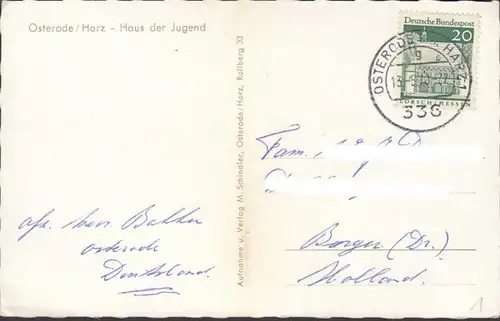 Osterode/Harz - Haus der Jugend
Deutsche Bundespost
20
LORSCH/HESSEN
OSTERODE HARZ 1
g
338
Aufnahme u. Verlag M. Schindler, Osterode/Harz, Rollberg 33
Fam.
afz.ham Bakker
Osterode
Deutschland.
Borger (Dr.)
Holland.
1